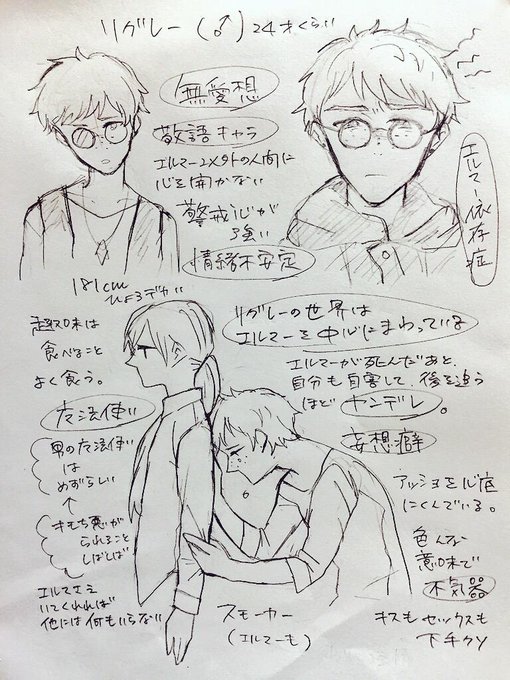 リグレー(♂)24才くらい
無愛想
敬語キャラ
エルマー以外の人間に
心を開かない
警戒心が
強い
情緒不安定
エルマー依存症
181cm
ムダにデカい
趣味は
食べること
よく食う。
リグレーの世界は
エルマーを中心にまわっている
エルマーが死んだあと、
自分も自害して、後を追う
ほどヤンデレ。
妄想癖
魔法使い
男の魔法使い
は
めずらしい
↑
きもち悪が
られること
しばしば
エルマーさえ
いてくれれば
他には何もいらない
アッシュを心底
にくんでいる。
色んな
意味で
不気器
キスもセックスも
下手クソ
スモーカー
(エルマーも)